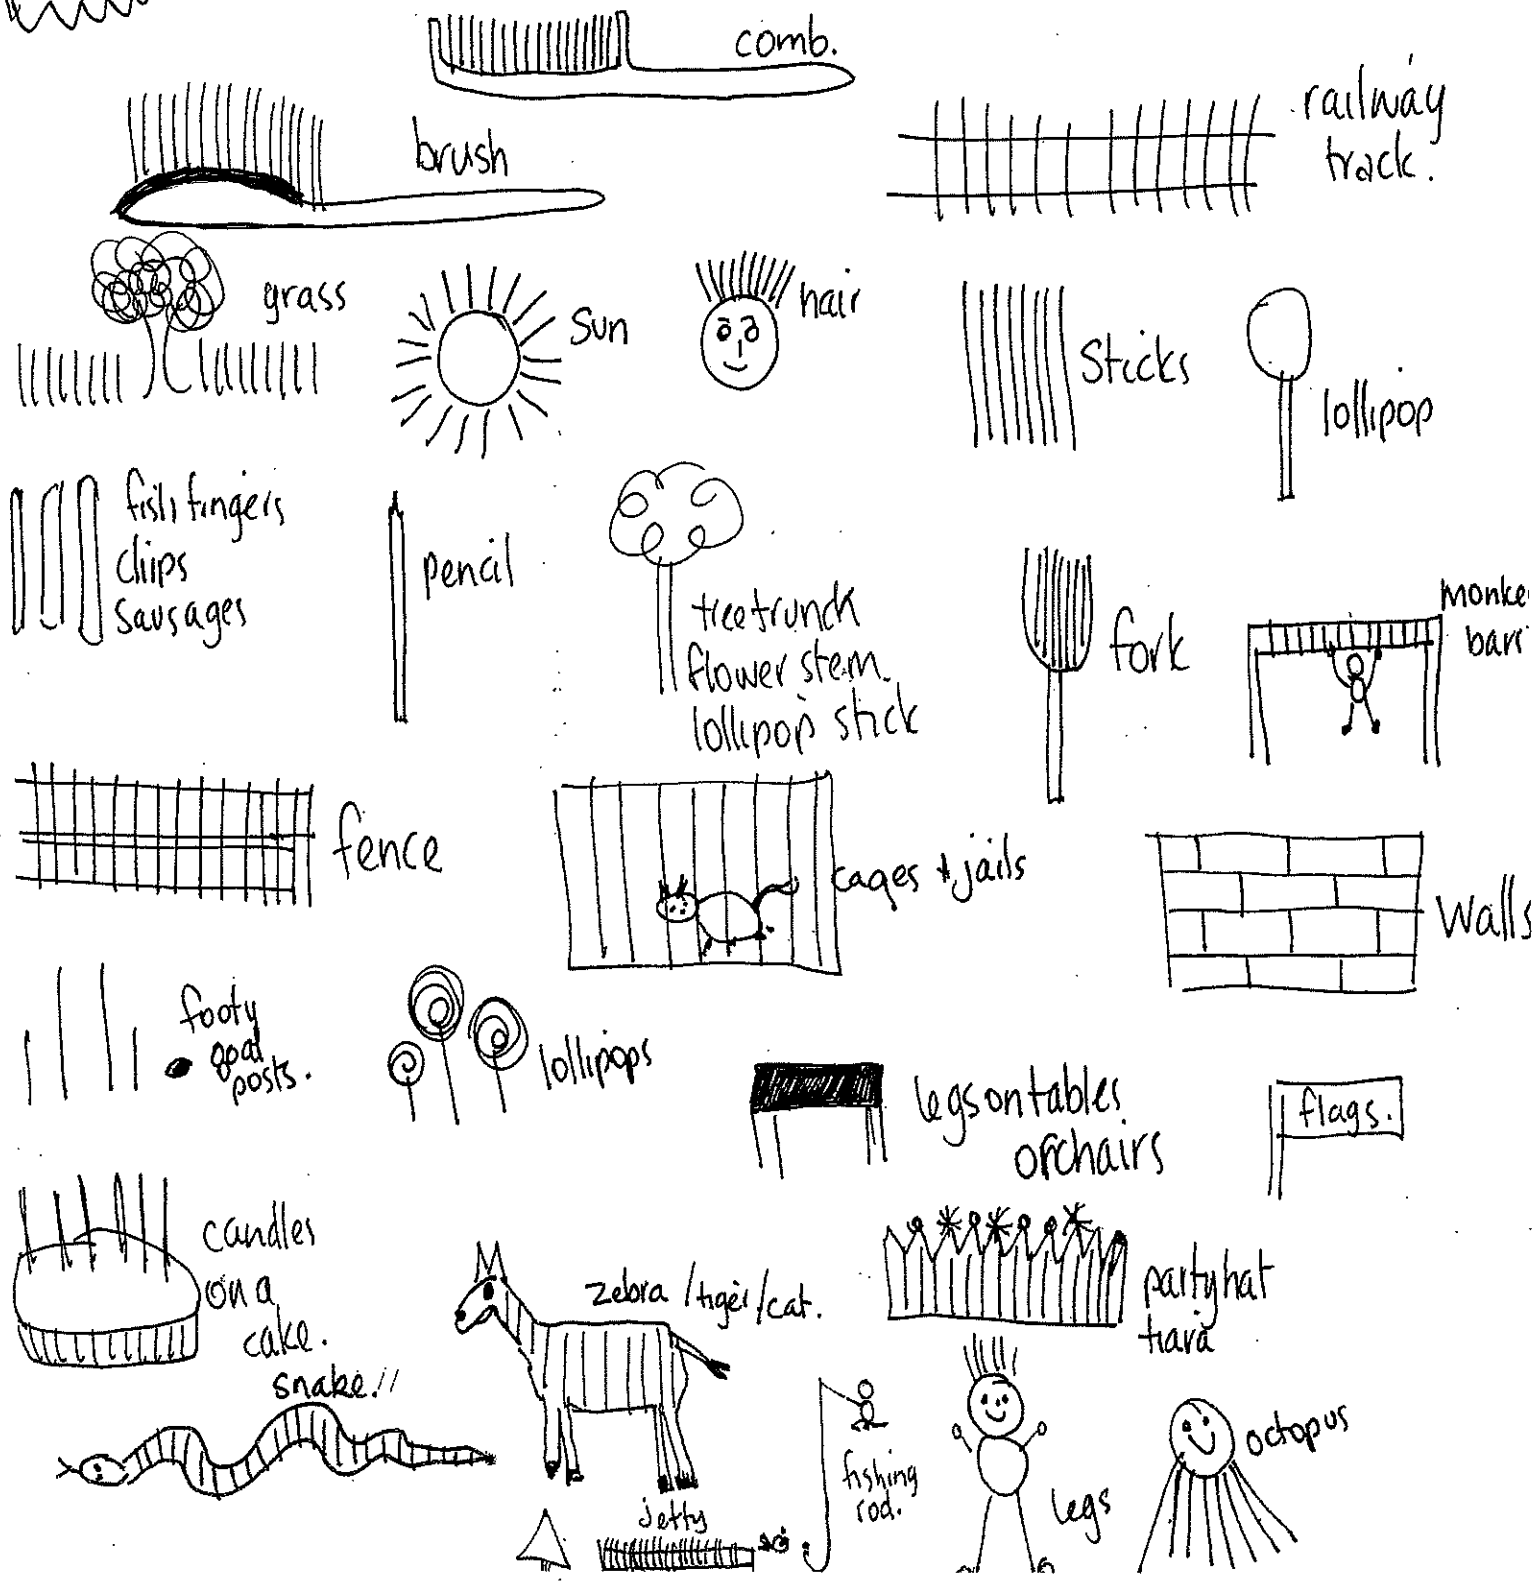 comb.
brush
railway
track.
grass
Sun
hair
Sticks
lollipop
fish fingers
chips
sausages
pencil
treetrunck
flower stem.
lollipop stick
fork
monke
bar
fence
cages + jails
Walls
footy
goal
posts.
lollipops
legs on tables
or chairs
flags.
candles
on a
cake.
zebra /tiger/cat.
party hat
tiara
snake.!!
fishing
rod.
jetty
legs
octopus